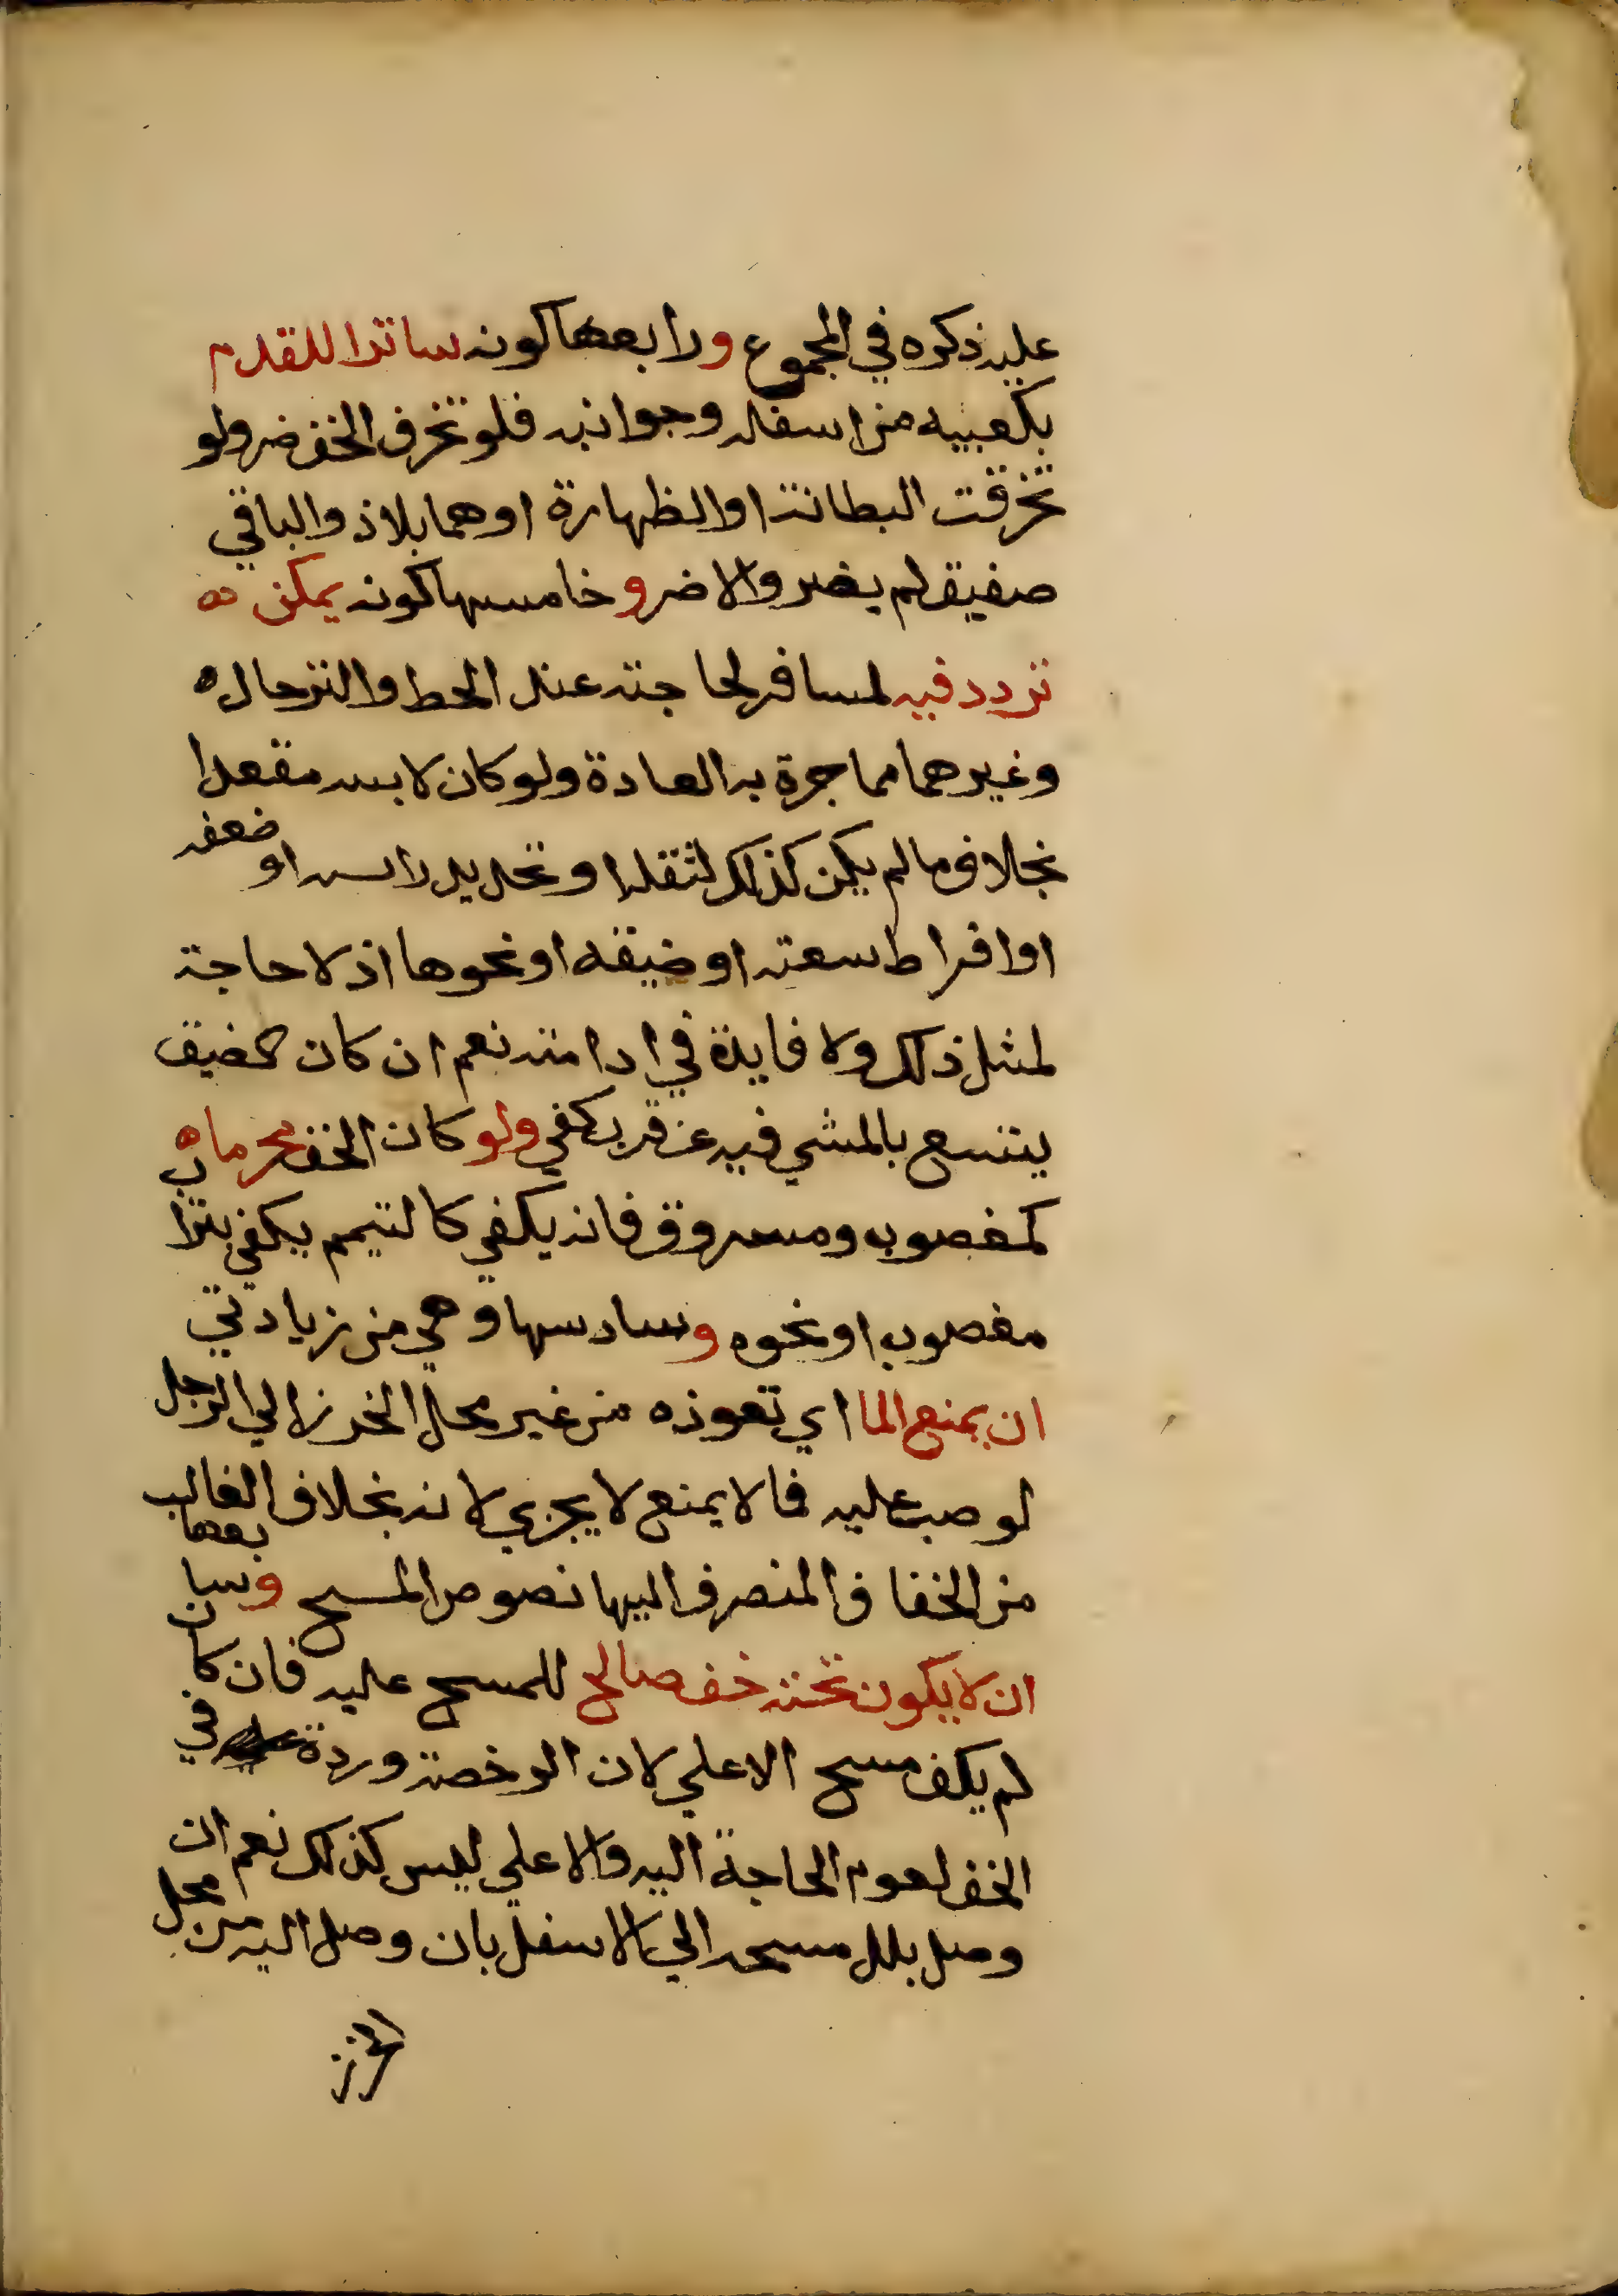 عليه ذكره في المجموع ورابعها كونه ساترا للقدم
بكعبيه من اسفله وجوانبه فلو تخرف الخف ضر ولو
تخرقت البطانة او الظهارة او هما بلاذ والباقي
صفيق لم يضر والا ضر وخامسها كونه يمكن
تردد فيه لمسافر لحاجته عند الحط والترحال
وغيرهما مما جرة به العادة ولو كان لابسه مقعدا
بخلاف ما لم يكن كذلك لثقله او تحديد راسه او ضعفه
او افراط سعته او ضيقه او نحوها اذ لا حاجة
لمثل ذلك ولا فايدة في ادامته نعم ان كان الضيق
يتسع بالمشي فيه عن قرب كفي ولو كان الخف محرما
كمغصوب ومسروق فانه يكفي كالتيمم يكفي بتراب
مغصوب او نحوه وسادسها وهي من زيادتي
ان يمنع الما اي تعوذه من غير محل الخرز الي الرجل
لو صب عليه فما لا يمنع لا يجزي لانه بخلاف الغالب
من الخفاف المنصرف اليها نصوص المسح وسابعها
ان لا يكون تحته خف صالح للمسح عليه فان كان
لم يكف مسح الاعلي لان الرخصة وردة في
الخف لعوم الحاجة اليه والاعلي ليس كذلك نعم ان
وصل بلل مسحه الي الاسفل بان وصل اليه من محل
الخرز